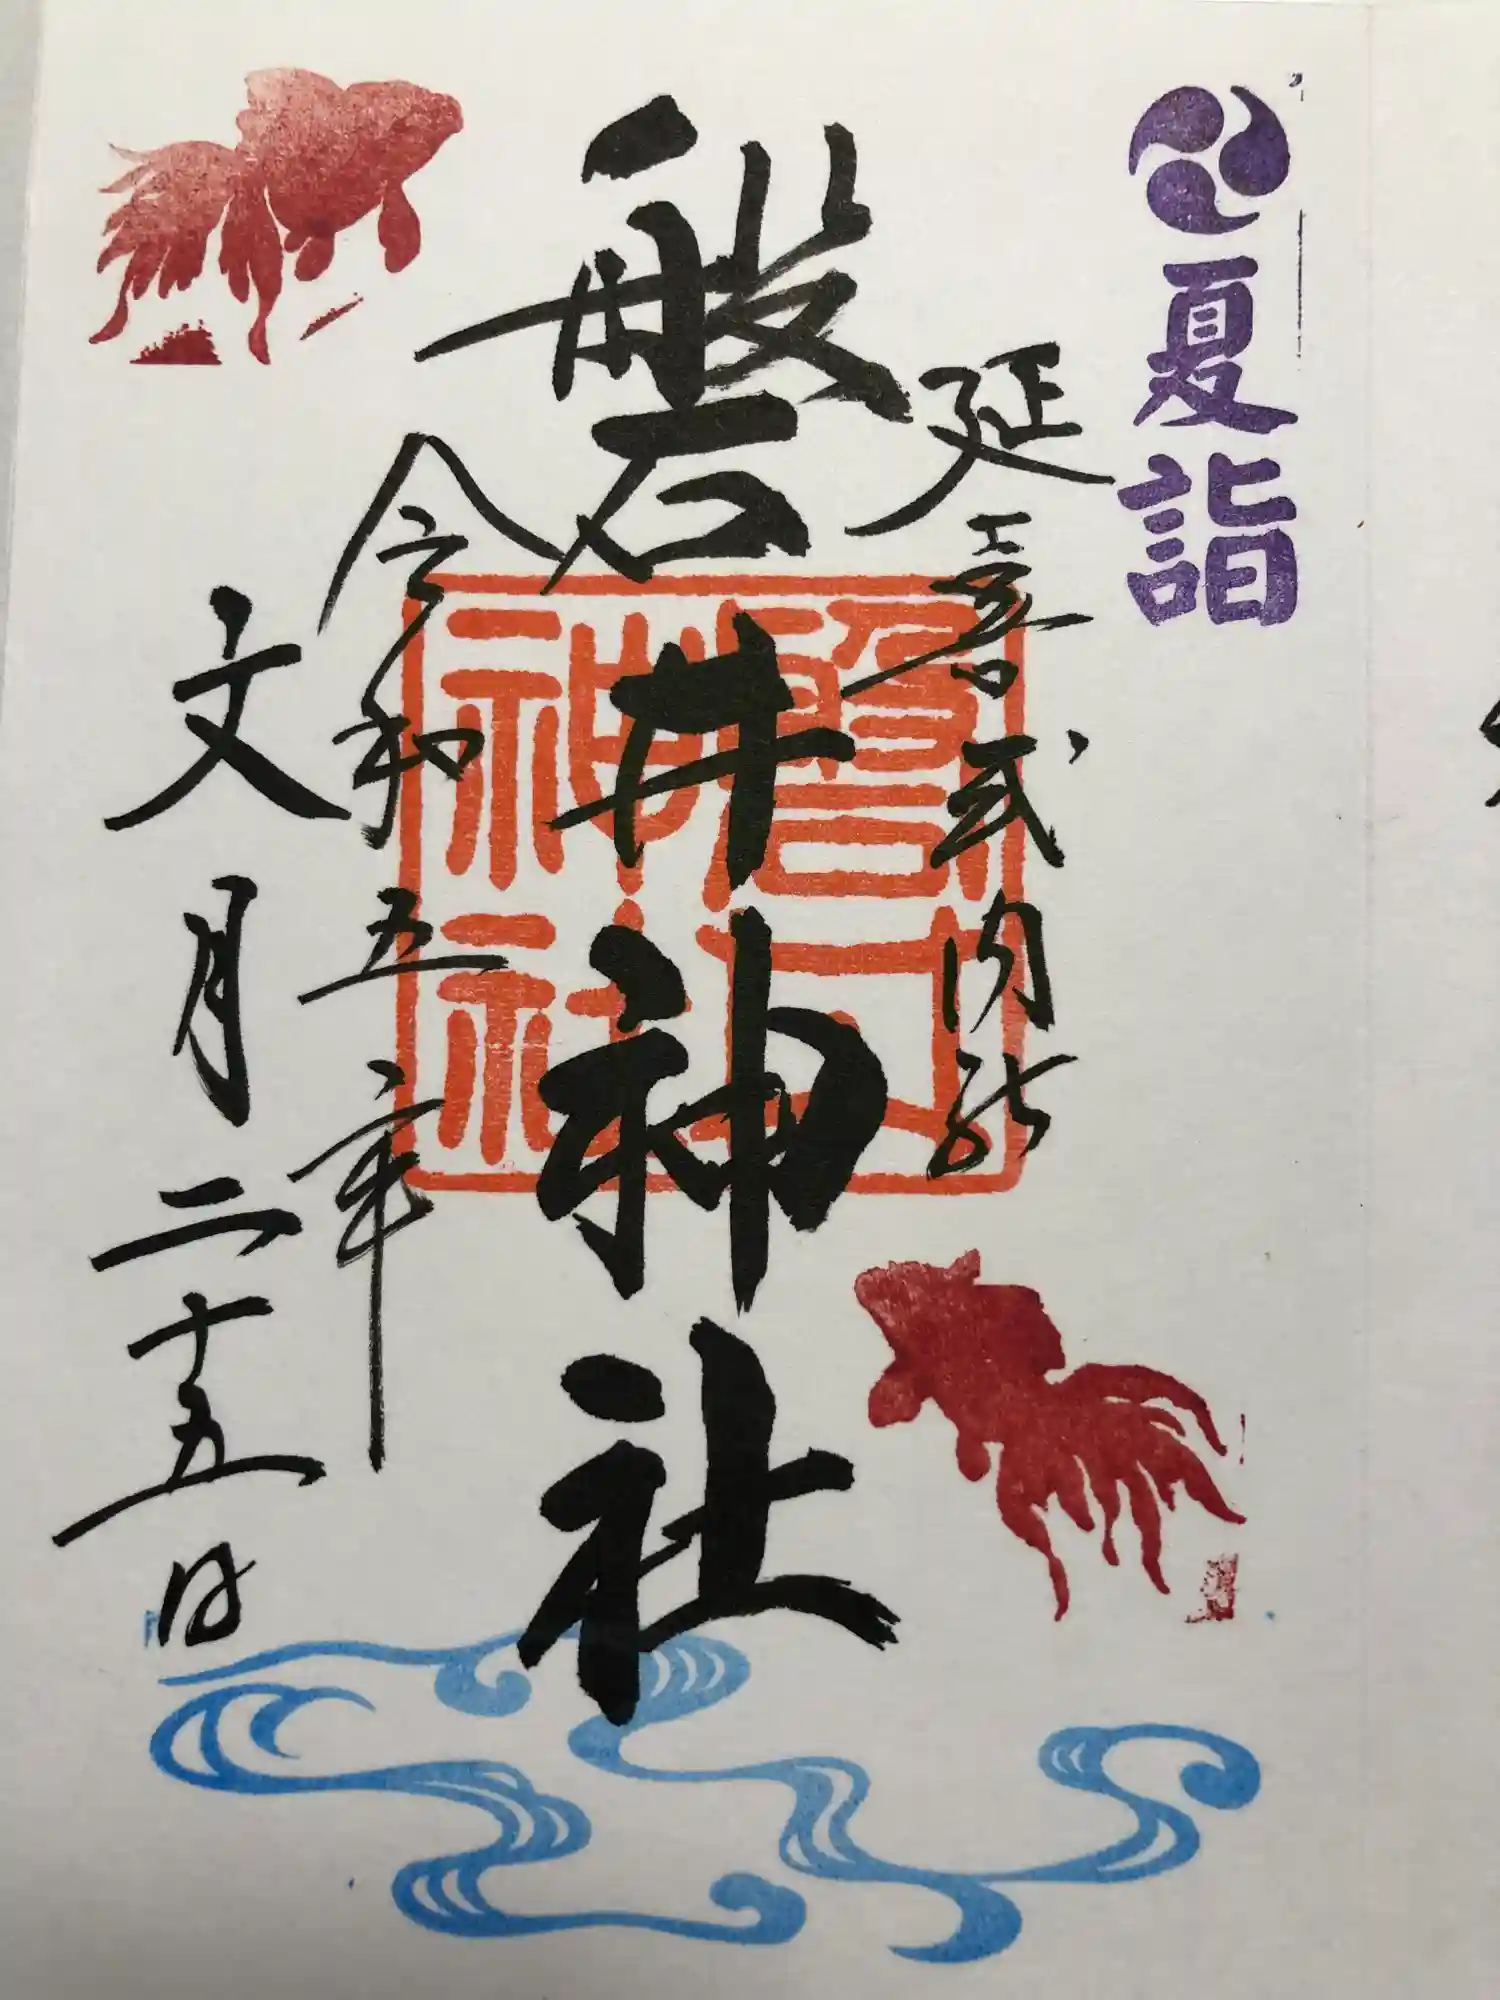 夏詣
延喜式内
磐井神社
磐井
神社
令和五年
文月二十五日